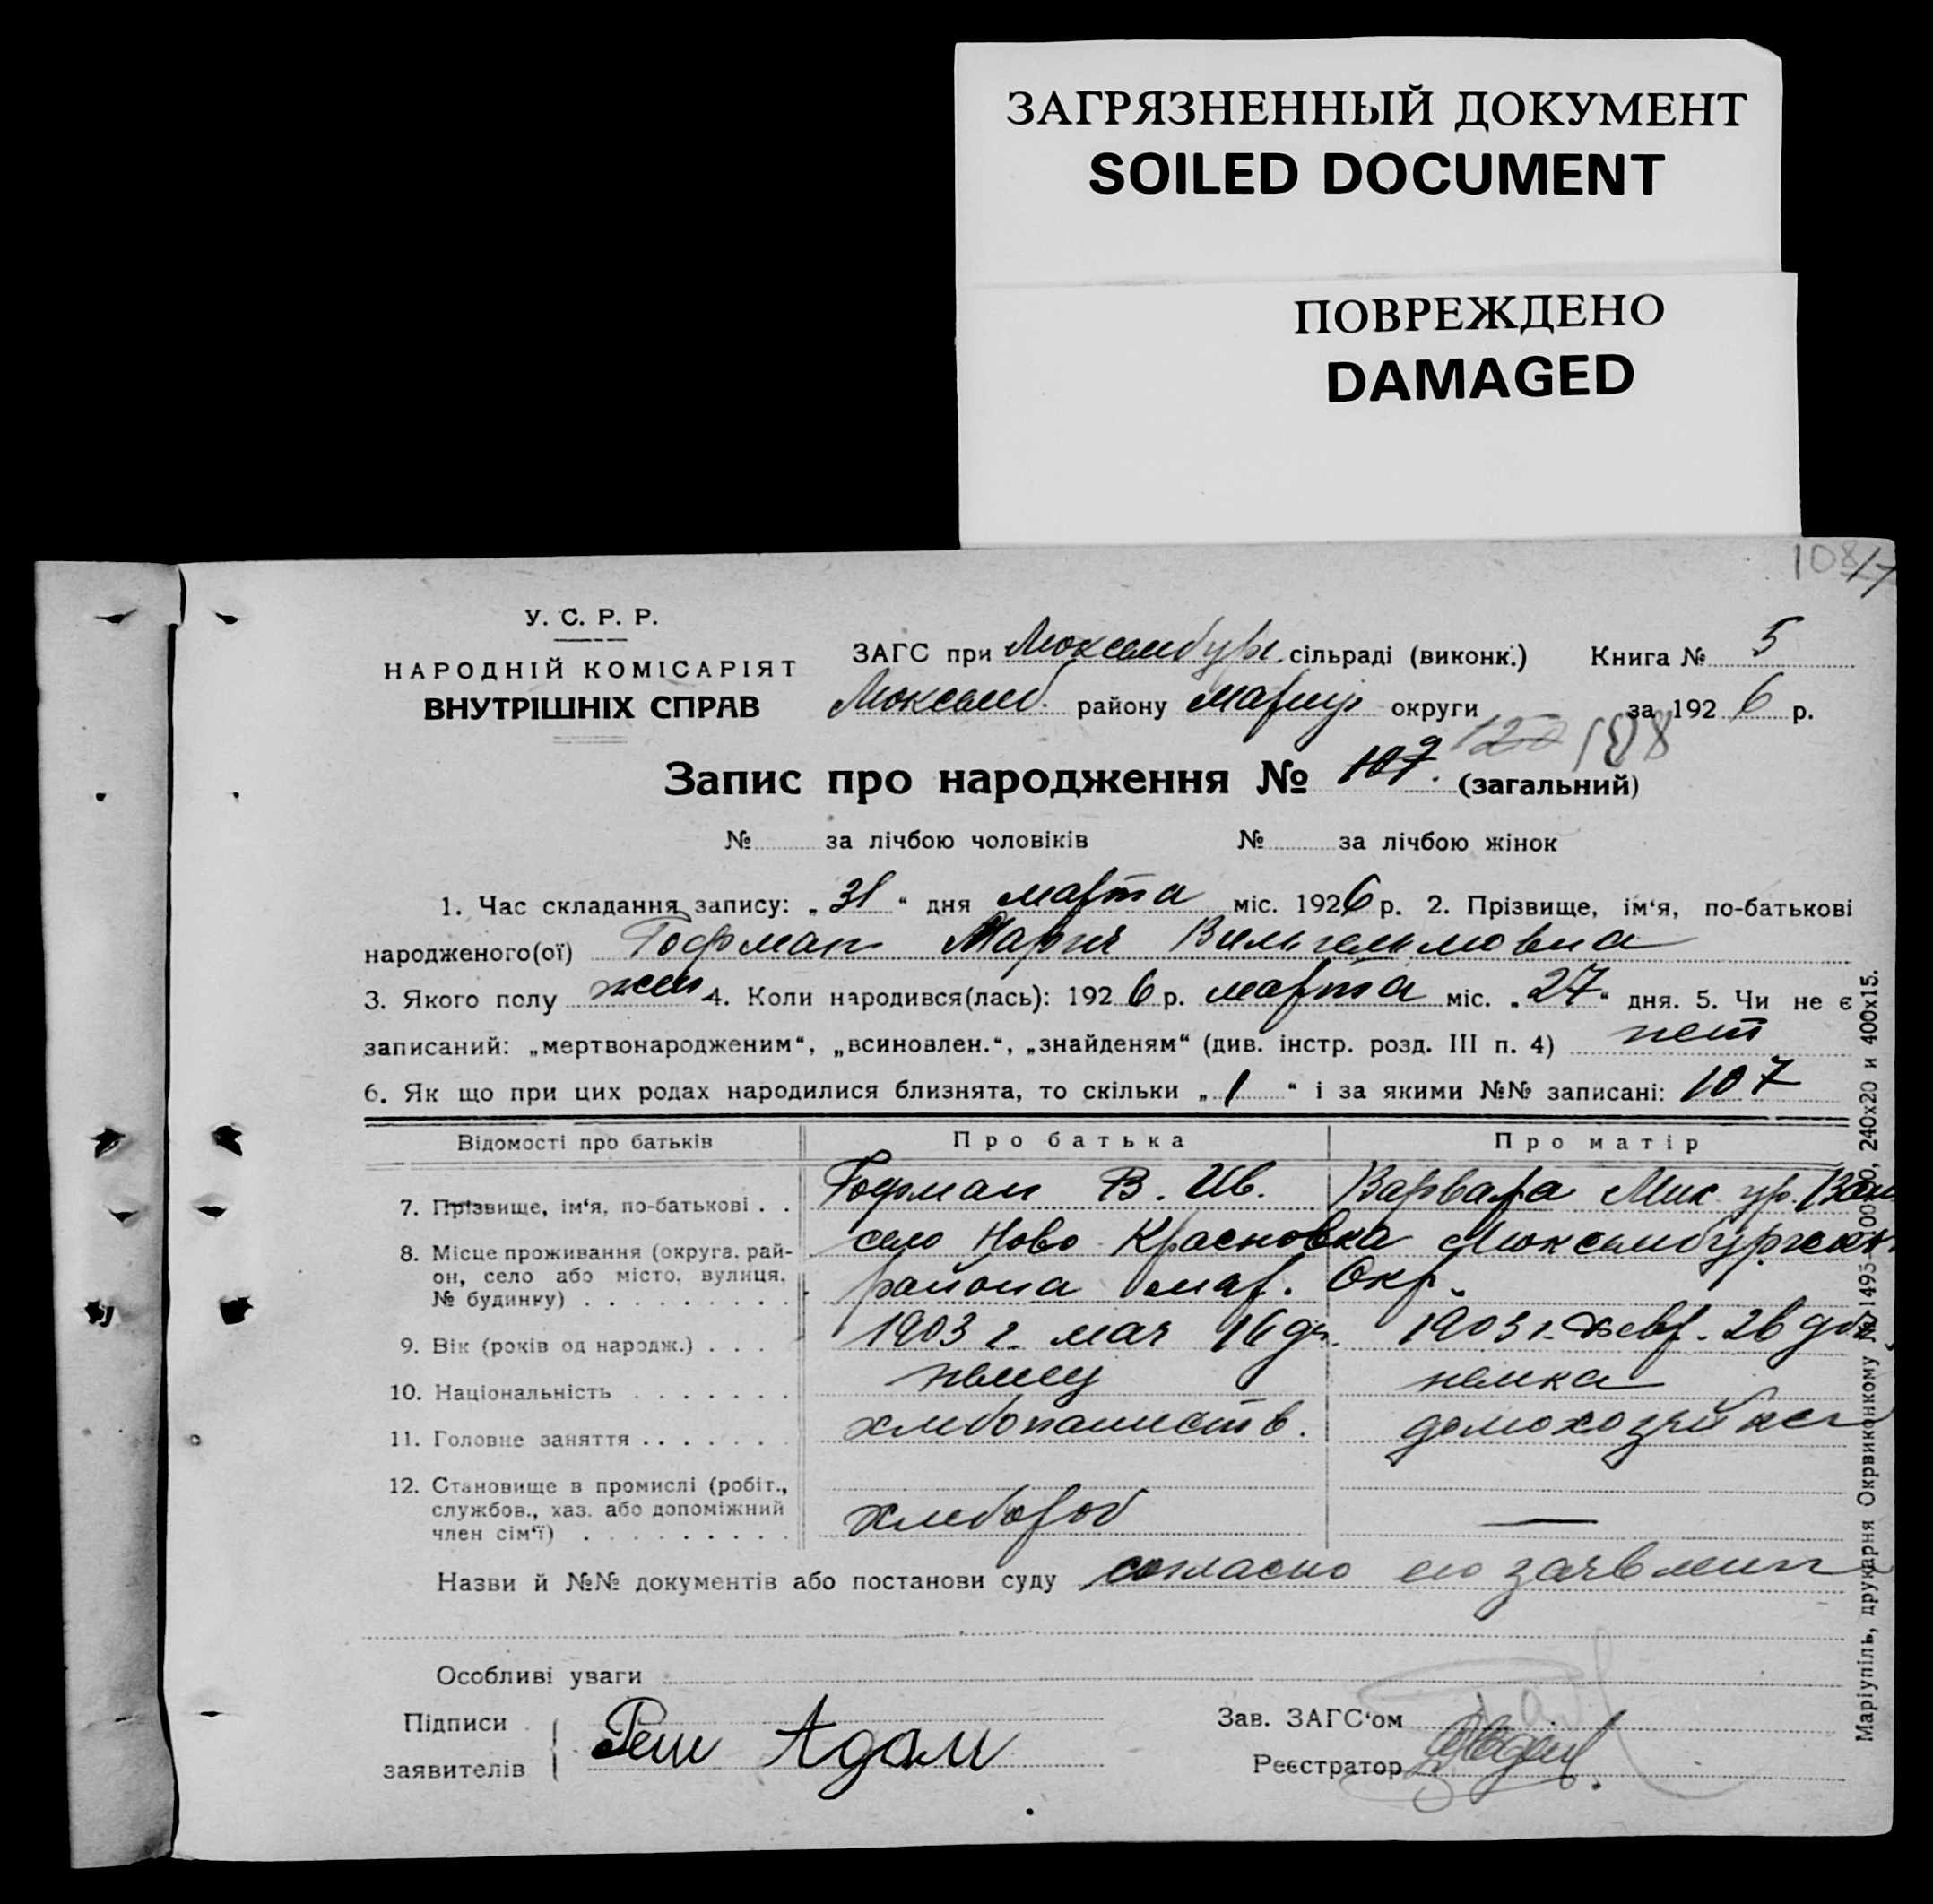 ЗАГРЯЗНЕННЫЙ ДОКУМЕНТ
SOILED DOCUMENT
ПОВРЕЖДЕНО
DAMAGED
У. С. Р. Р.
НАРОДНІЙ КОМІСАРІЯТ
ВНУТРІШНІХ СПРАВ
ЗАГС при Люксембург. сільраді (виконк.) Книга № 5
Люксемб. району Мариуп округи за 1926 р.
Запис про народження № 109. 108 (загальний)
№ за лічбою чоловіків № за лічбою жінок
1. Час складання запису: „ 31 “ дня марта міс. 1926 р. 2. Прізвище, ім‘я, по-батькові
народженого(ої) Гофман Мария Вильгельмовна
3. Якого полу жен 4. Коли народився(лась): 1926 р. марта міс. „ 27 “ дня. 5. Чи не є
записаний: „мертвонародженим“, „всиновлен.“, „знайденям“ (див. інстр. розд. III п. 4) нет
6. Як що при цих родах народилися близнята, то скільки „ 1 “ і за якими №№ записані: 107
Відомості про батьків Про батька Про матір
7. Прізвище, ім‘я, по-батькові . . Гофман В. Ив. Варвара Мих. ур.
8. Місце проживання (округа, рай-
он, село або місто, вулиця,
№ будинку) . . . . . . . . .
село Ново Красновка Люксембургск
района Мар. Окр.
9. Вік (років од народж.) . . . 1903 г. мая 16 дн. 1903 г. Февр. 26 дня
10. Національність . . . . . . . немец немка
11. Головне заняття . . . . . . хлебопашеств. домохозяйка
12. Становище в промислі (робіт.,
службов., хаз. або допоміжний
член сім‘ї) . . . . . . . . .
хлебороб —
Назви й №№ документів або постанови суду согласно его заявлении
Особливі уваги
Підписи
заявителів
Реш Адам
Зав. ЗАГС‘ом
Реєстратор
Маріупіль, друкарня Окрвиконкому № 1495—10000, 240х20 и 400х15.